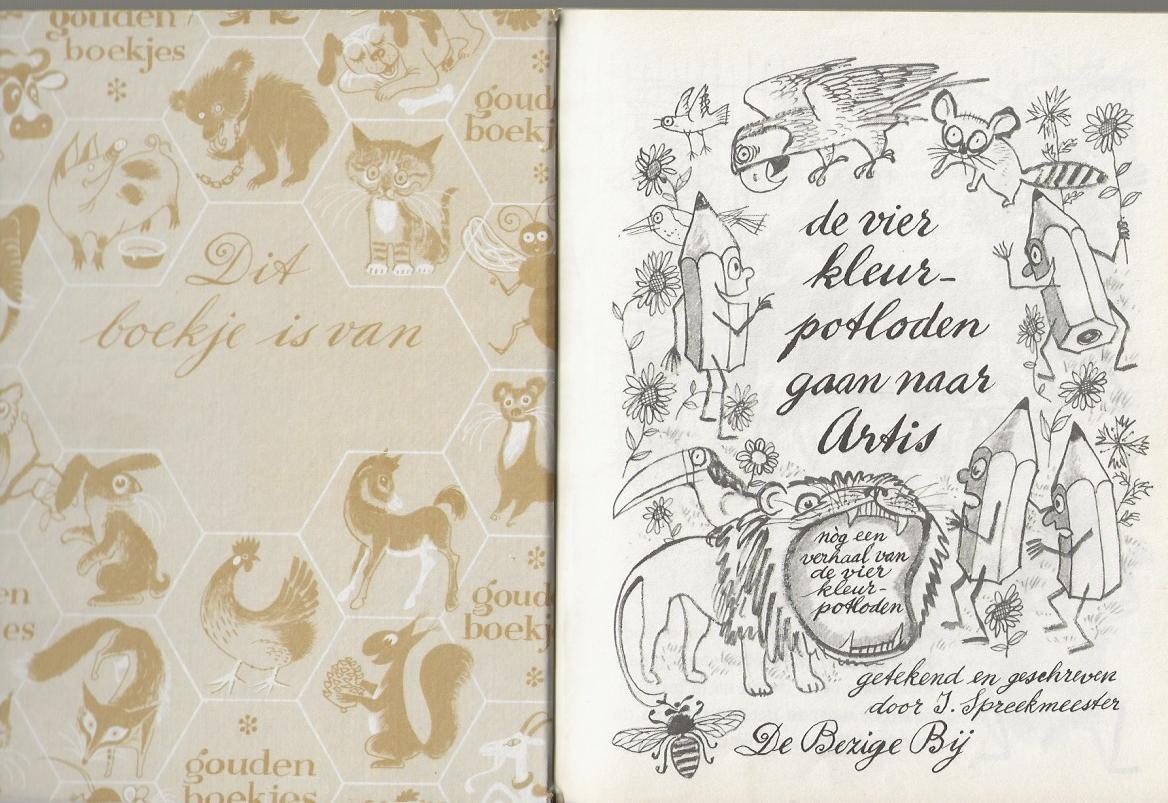 gouden
boekjes
goud
boekj
Dit
boekje is van
en
es
goude
boekj
gouden
boekjes
de vier
kleur-
potloden
gaan naar
Artis
nòg een
verhaal van
de vier
kleur-
potloden
getekend en geschreven
door I. Spreekmeester
De Bezige Bij